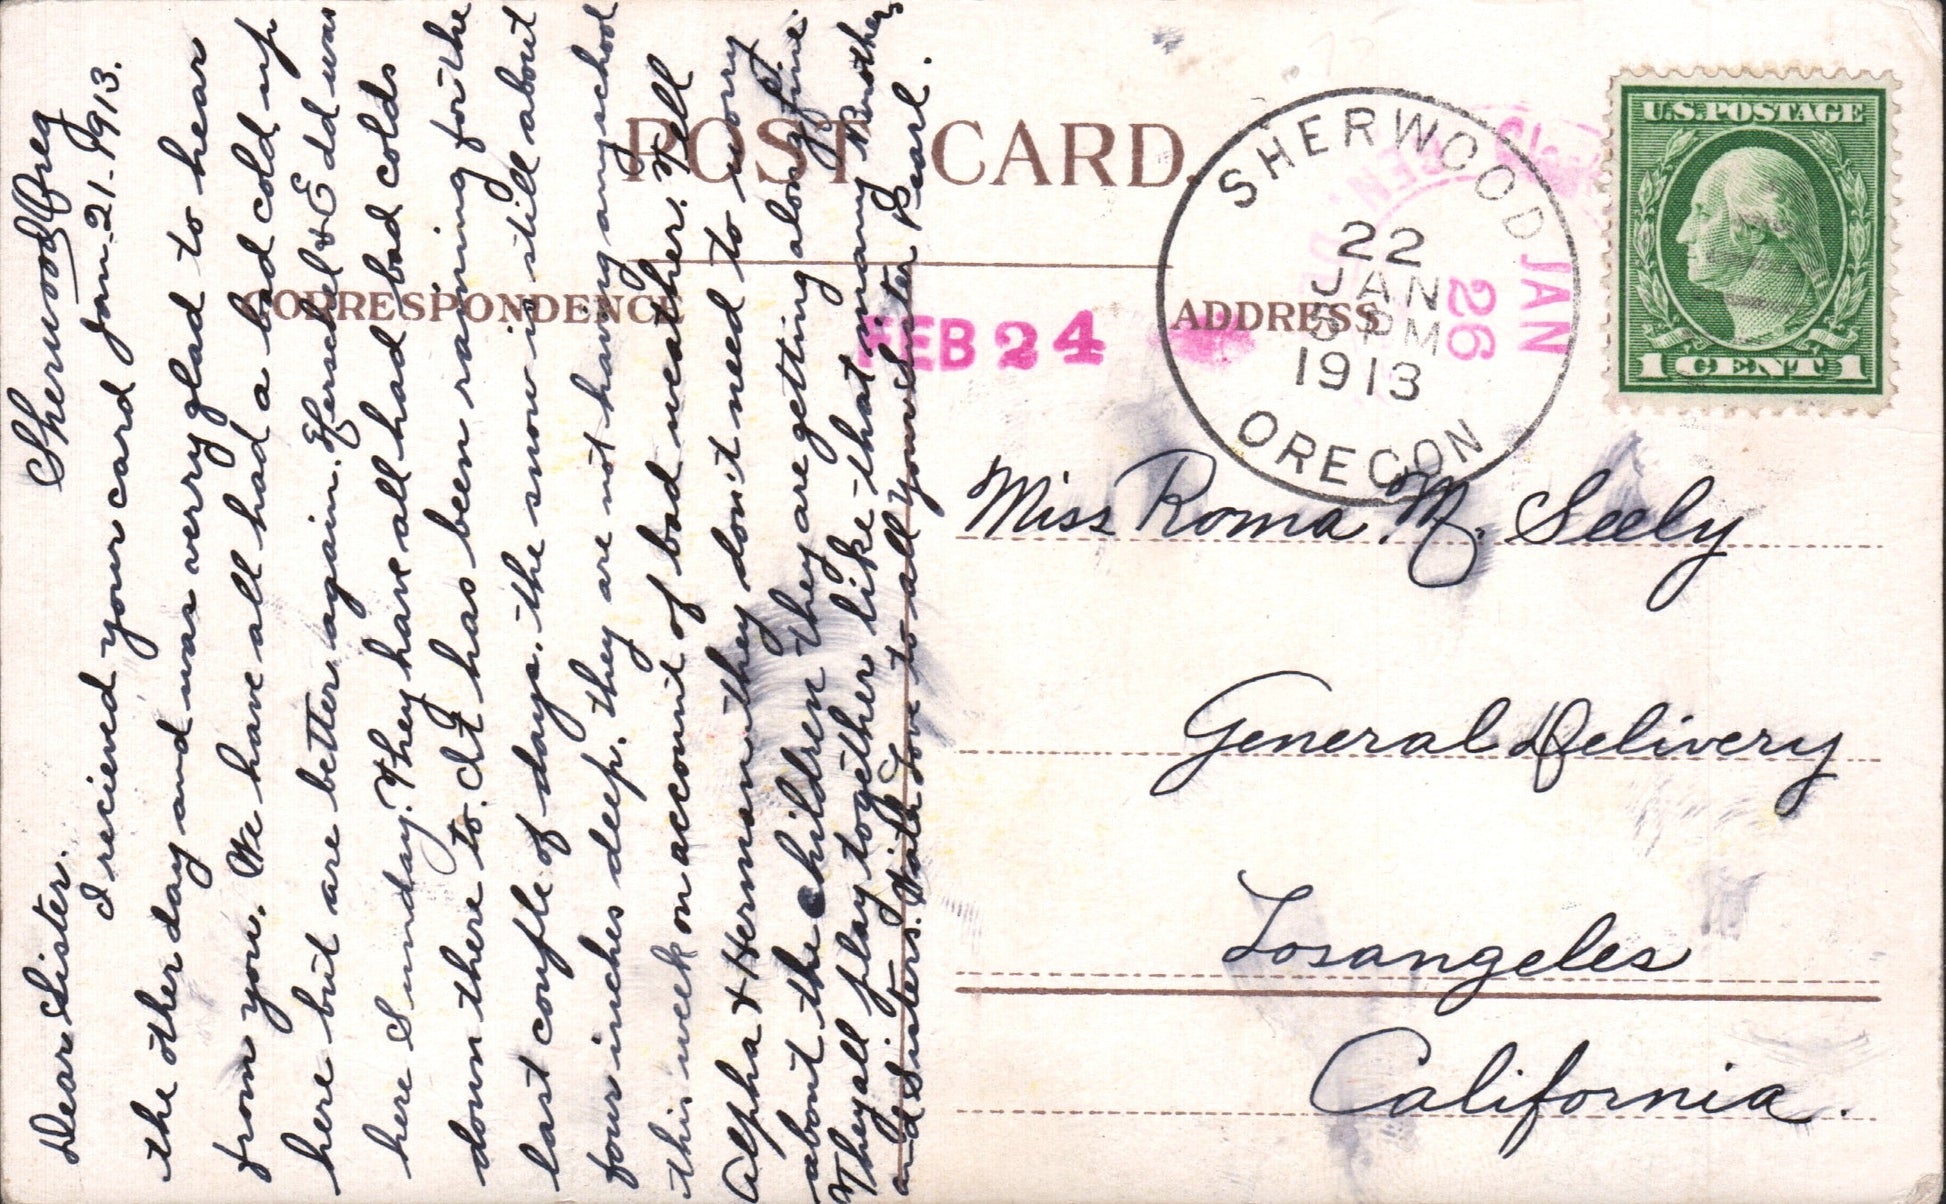 POST CARD.
CORRESPONDENCE
ADDRESS
U.S. POSTAGE
1 CENT 1
SHERWOOD
22
JAN
5 PM
1913
OREGON
JAN
26
FEB 24
Miss Roma M. Seely
General Delivery
Losangeles
California.
Sherwood Oreg
Jan-21-1913.
Dear Sister.
I recieved your card
the other day and was verry glad to hear
from you. We have all had a bad cold up
here but are better again. Herschel & Edd was
here Sunday. They have all had bad colds
down there to. It has been raining for the
last couple of days. the snow is still about
four inches deep. they are not having any school
this week on account of bad weather. Tell
Alpha & Herman they don't need to worry
about the children they are getting along fine.
They all play together like that many Brothers
and Sisters. With Love to all your sister Pearl.